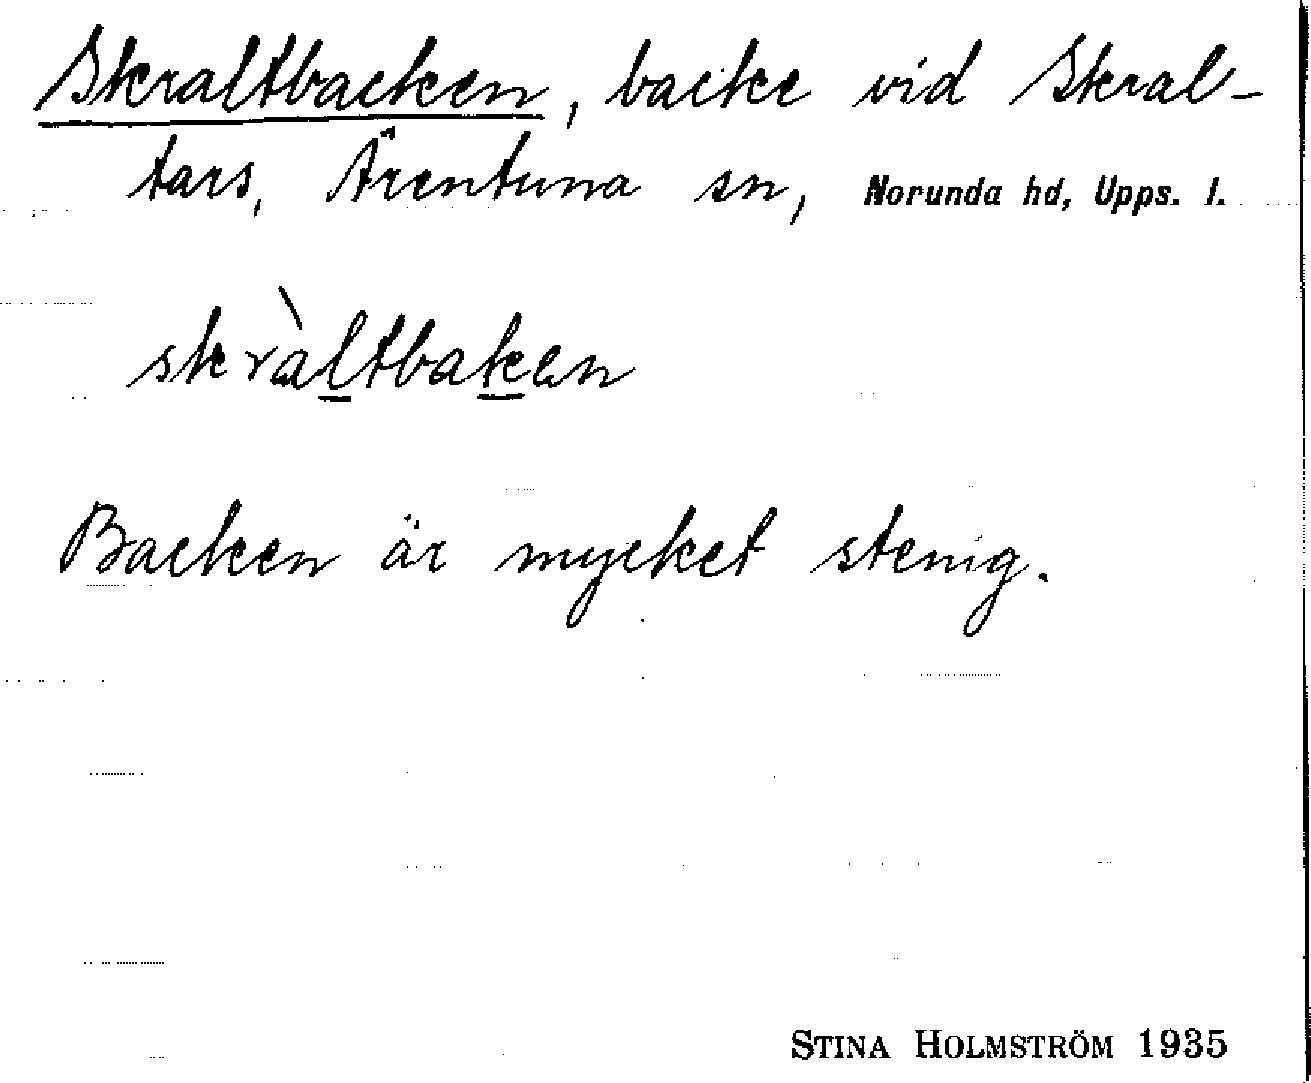 Skraltbacken, backe vid Skral-
tars, Ärentuna sn, Norunda hd, Upps. l.
skràltbaken
Backen är mycket stenig.
STINA HOLMSTRÖM 1935